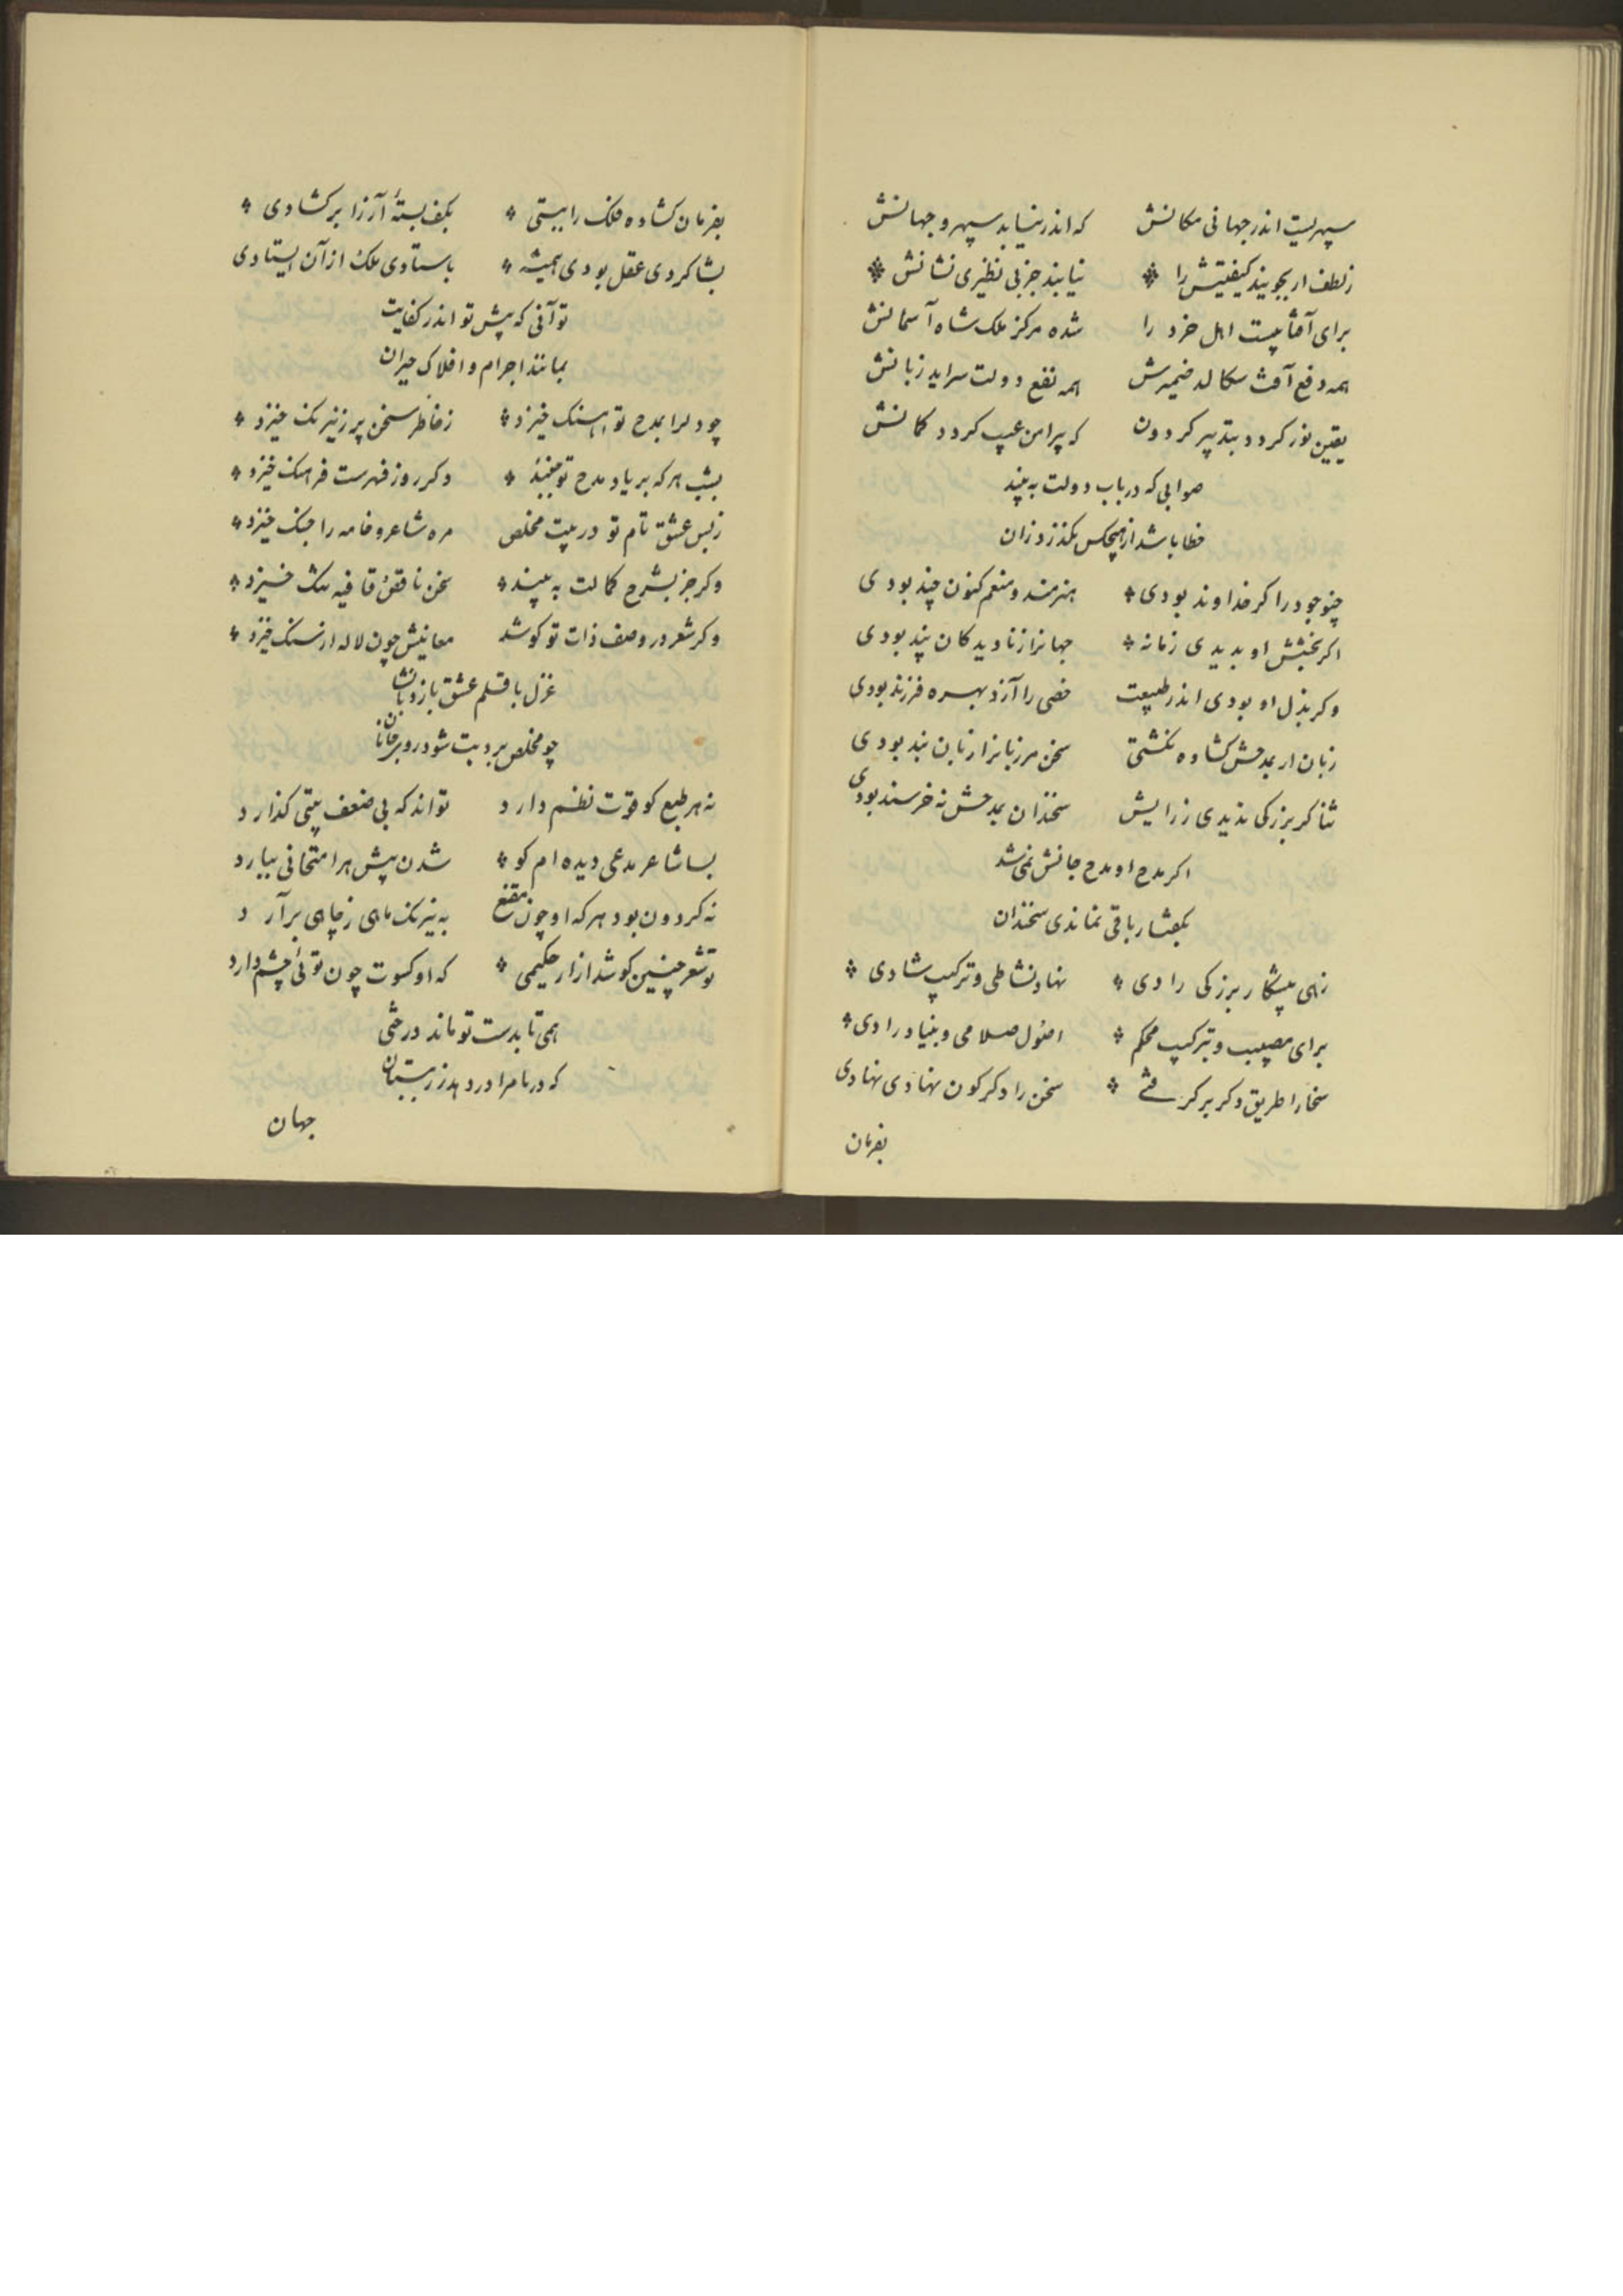 سپهریست اندر جهانی مکانش که اندر نیابد سپهر و جهانش
ز لطف ار بجویند کیفیتش را نیابند جز بی نظیری نشانش
برای آفتابیست اهل خرد را شده مرکز ملک شاه آسمانش
همه دفع آفت سکالد ضمیرش همه نفع دولت سراید زبانش
یقین نور کردد بتدبیر کردون که پیرامن عیب کردد کمانش
صوابی که در باب دولت به بیند
خطا باشد از هیچکس بکذرد زان
چنو جود را کر خداوند بودی هنرمند و منعم کنون چند بودی
اکر بخشش او بدیدی زمانه جهانرا ز نادیدکان پند بودی
وکر بذل او بودی اندر طبیعت خصی را آزد بهره فرزند بودی
زبان ار بمدحش کشاده نکشتی سخن مرزبانرا زبان بند بودی
ثنا کر بزرکی ندیدی ز رایش سخندان بمدحش نه خرسند بودی
اکر مدح او مدح جانش نمی شد
بکفتار باقی نماندی سخندان
زهی پیشکار بزرکی رادی نهاد نشاطی و ترکیب شادی
برای مصیب و بترکیب محکم اصول صلاحی و بنیاد رادی
سخا را طریق دکر بر کرفتی سخن را دکرکون نهادی نهادی
بفرمان
بفرمان کشاده فلک را ببستی بکف بستهٔ آز را بر کشادی
بشاکردی عقل بودی همیشه باستادی ملک از آن ایستادی
تو آنی که پیش تو اندر کفایت
بمانند اجرام و افلاک حیران
چو دلرا بمدح تو آهنک خیزد ز خاطر سخن پر ز نیرنک خیزد
بشب هر که بر یاد مدح تو دکر روز فهرست فرهنک خیزد
ز بس عشق نام تو در بیت مخلص مره شاعر و خامه را جنک خیزد
وکر جز بشرح کمالت به بیند سخن ناقص قافیه تنک خیزد
وکر شعر در وصف ذات تو کوشد معانیش چون لاله از سنک خیزد
غزل با قلم عشق بازد
چو مخلص برد بیت شود در و بر
نه هر طبع کو قوت نظم دارد تواند که بی ضعف بیتی کذارد
بسا شاعر مدعی دیده ام کو شدن پیش هر امتحانی نیارد
نه کردون بود هر که او چون مقنع به نیرنک ماهی ز چاهی برآرد
تو شعر چنین کوشد از ار حکیمی که او کسوت چون توئی چشم دارد
همی تا بدست تو ماند درختی
که در نامرادر دهد زر بستان
جهان